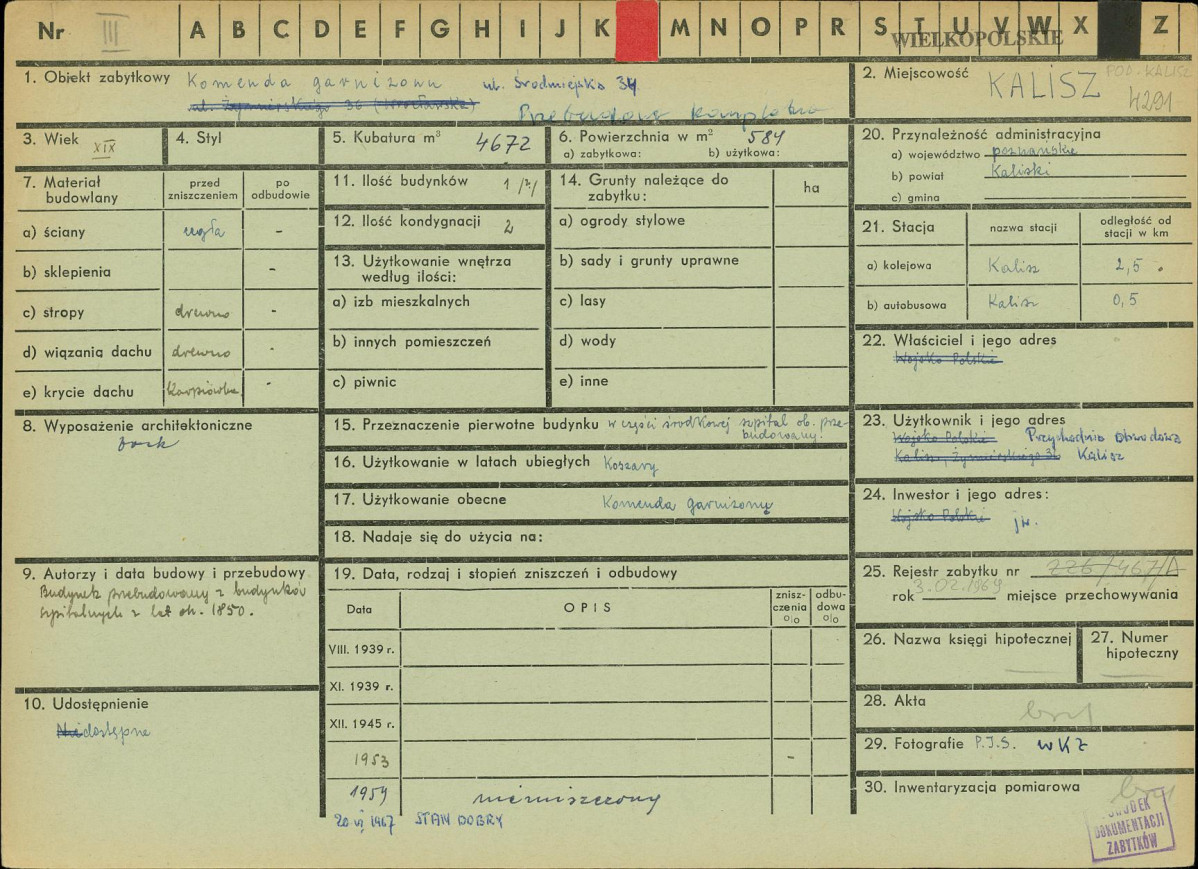 Nr III A B C D E F G H I J K M N O P R S T U V W X Z
WIELKOPOLSKIE
1. Obiekt zabytkowy Komenda garnizonu ul. Śródmiejska 34
ul. Żymierskiego 36 (Wrocławska)
Przebudowa kompletna
2. Miejscowość KALISZ POD. KALISZ
4291
3. Wiek XIX
4. Styl
5. Kubatura m³ 4672
6. Powierzchnia w m² 584
a) zabytkowa: b) użytkowa:
20. Przynależność administracyjna
a) województwo poznańskie
b) powiat Kaliski
c) gmina
7. Materiał budowlany
przed zniszczeniem
po odbudowie
a) ściany cegła -
b) sklepienia -
c) stropy drewno -
d) wiązania dachu drewno -
e) krycie dachu Karpiówka -
11. Ilość budynków 1
12. Ilość kondygnacji 2
13. Użytkowanie wnętrza
według ilości:
a) izb mieszkalnych
b) innych pomieszczeń
c) piwnic
14. Grunty należące do
zabytku:
ha
a) ogrody stylowe
b) sady i grunty uprawne
c) lasy
d) wody
e) inne
21. Stacja
nazwa stacji
odległość od
stacji w km
a) kolejowa Kalisz 2,5
b) autobusowa Kalisz 0,5
22. Właściciel i jego adres
Wojsko Polskie
8. Wyposażenie architektoniczne
brak
15. Przeznaczenie pierwotne budynku w części środkowej szpital ob. prze-
budowany.
16. Użytkowanie w latach ubiegłych Koszary
17. Użytkowanie obecne Komenda garnizonu
18. Nadaje się do użycia na:
23. Użytkownik i jego adres
Wojsko Polskie Przychodnia Obwodowa
Kalisz, Żymierskiego 36 Kalisz
24. Inwestor i jego adres:
Wojsko Polskie jw.
9. Autorzy i data budowy i przebudowy
Budynek przebudowany z budynków
szpitalnych z lat ok. 1850.
10. Udostępnienie
Niedostępne
19. Data, rodzaj i stopień zniszczeń i odbudowy
Data
OPIS
znisz-
czenia
o/o
odbu-
dowa
o/o
VIII. 1939 r.
XI. 1939 r.
XII. 1945 r.
1953 -
1959 niezniszczony
20 VI 1967 STAN DOBRY
25. Rejestr zabytku nr 226/467/A
rok 3.02.1969 miejsce przechowywania
26. Nazwa księgi hipotecznej
27. Numer
hipoteczny
28. Akta brak
29. Fotografie P.J.S. WKZ
30. Inwentaryzacja pomiarowa brak
OŚRODEK
DOKUMENTACJI
ZABYTKÓW